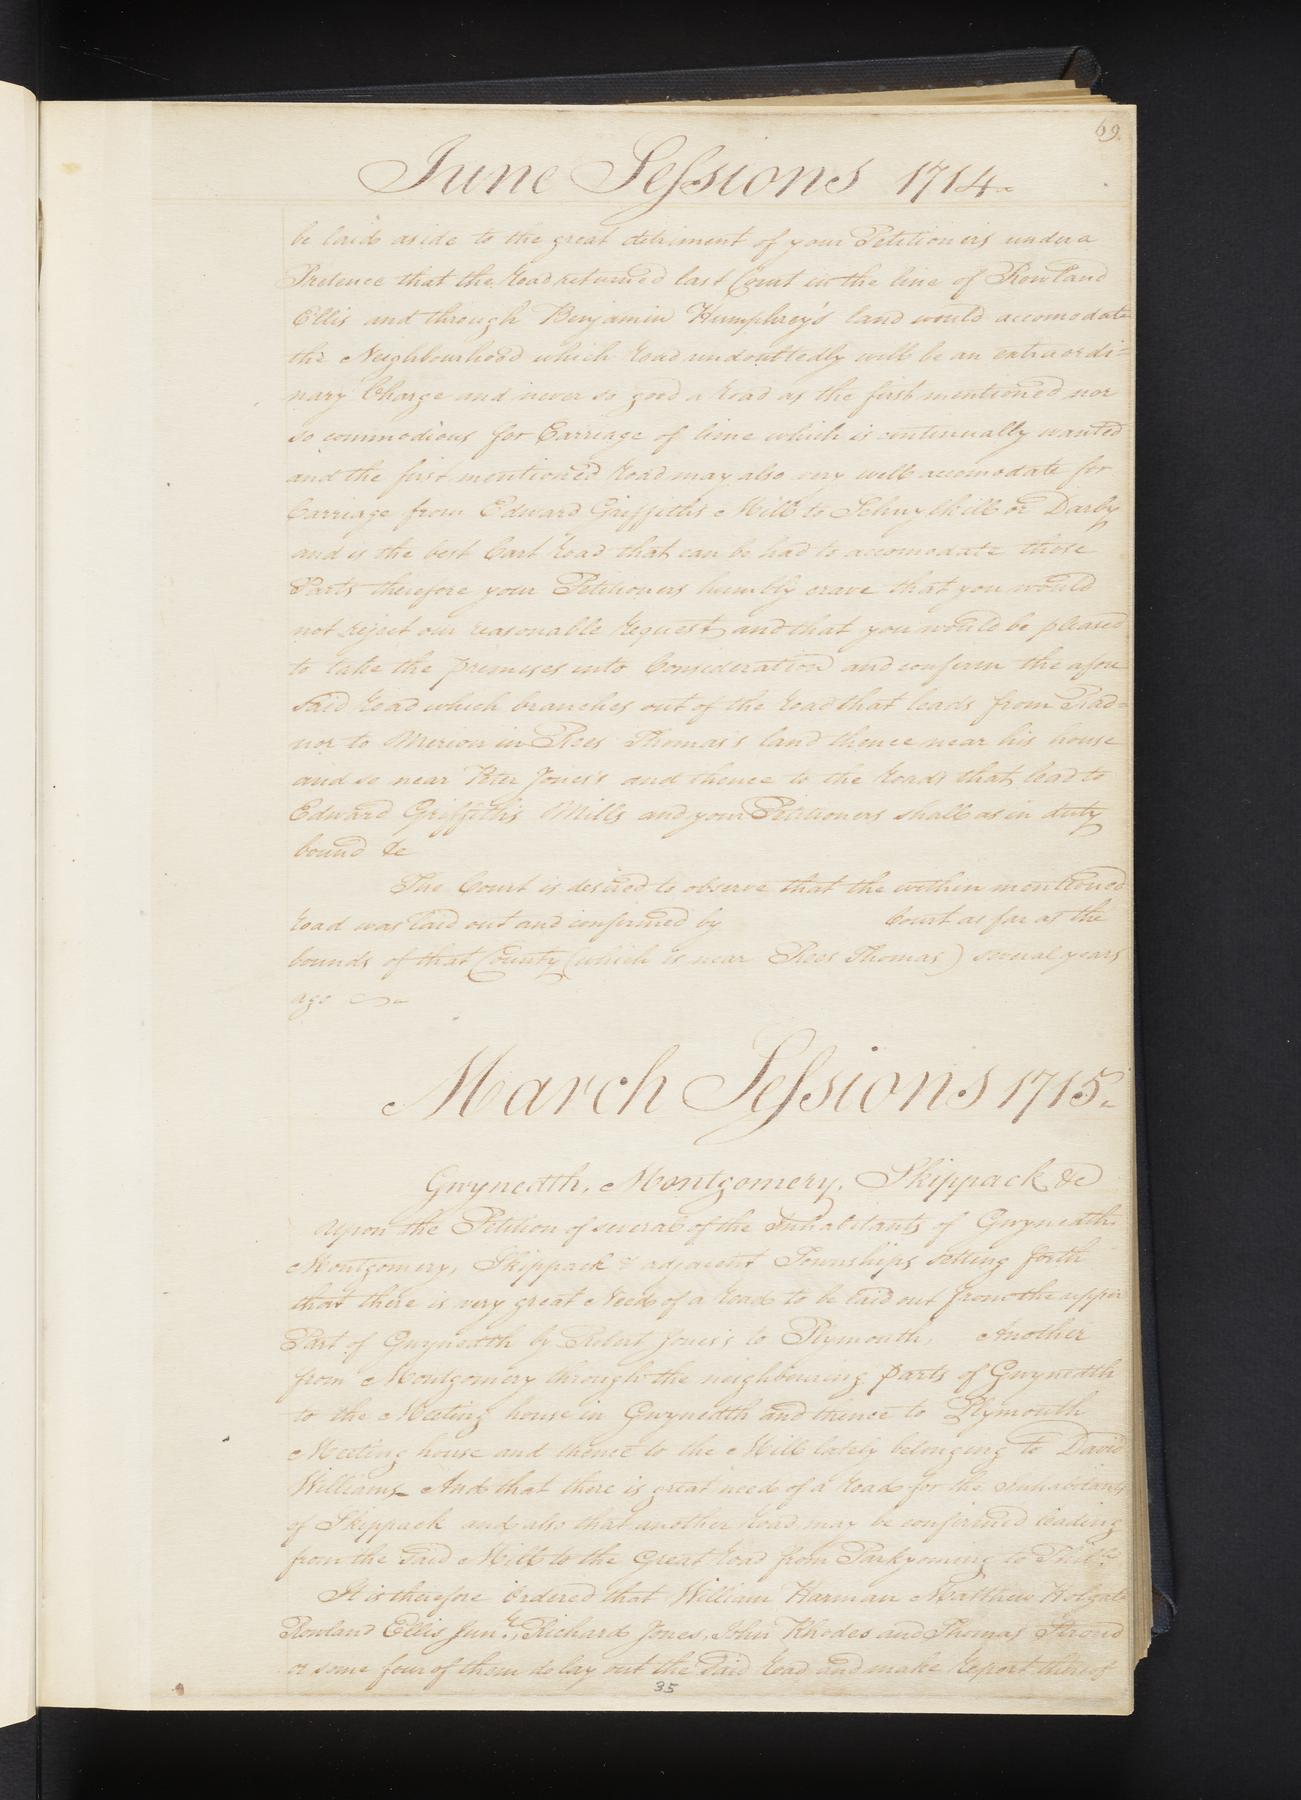 69.
June Sessions 1714.
be laid aside to the great detriment of your Petitioners under a
Pretence that the Road returned last Court in the line of Rowland
Ellis and through Benjamin Humphrey's land would accomodate
the Neighbourhood which Road undoubtedly will be an extraordi=
nary Charge and never so good a Road as the first mentioned nor
so commodious for Carriage of lime which is continually wanted
and the first mentioned Road may also very well accomodate for
Carriage from Edward Griffith's Mill to Schuylkill or Darby
and is the best Cart Road that can be had to accomodate those
Parts therefore your Petitioners humbly crave that you would
not reject our reasonable Request and that you would be pleased
to take the premises into Consideration and confirm the afore
said Road which branches out of the Road that leads from Rad=
nor to Merion in Rees Thomas's land thence near his house
and so near Peter Jones's and thence to the Roads that lead to
Edward Griffith's Mills and your Petitioners shall as in duty
bound &c
The Court is desired to observe that the within mentioned
Road was laid out and confirmed by Court as far as the
bounds of that County (which is near Rees Thomas) several years
ago
March Sessions 1715.
Gwynedth, Montgomery, Skippack &c
Upon the Petition of several of the Inhabitants of Gwynedth
Montgomery, Skippack & adjacent Townships setting forth
that there is very great Need of a Road to be laid out from the upper
Part of Gwynedth by Robert Jones's to Plymouth, Another
from Montgomery through the neighbouring parts of Gwynedth
to the Meeting house in Gwynedth and thence to Plymouth
Meeting house and thence to the Mill lately belonging to David
Williams And that there is great need of a Road for the Inhabitants
of Skippack and also that another Road may be confirmed leading
from the said Mill to the Great Road from Parkyoming to
It is therefore Ordered that William Harman Matthew Holgate
Rowland Ellis Junr., Richard Jones, John Rhodes and Thomas Stroud
or some four of them do lay out the said Road and make Report thereof
35